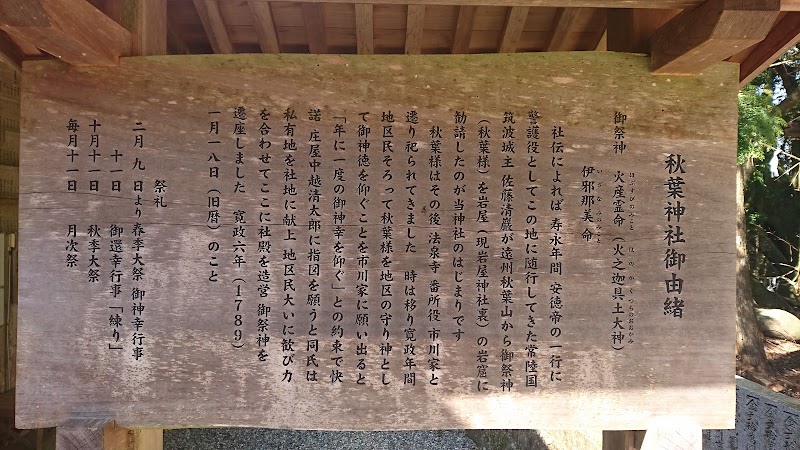 秋葉神社御由緒
御祭神 火産霊命(火之迦具土大神)
伊邪那美命
社伝によれば 寿永年間 安徳帝の一行に
警護役としてこの地に随行してきた常陸国
筑波城主 佐藤清巌が遠州秋葉山から御祭神
(秋葉様)を岩屋(現岩屋神社裏)の岩窟に
勧請したのが当神社のはじまりです
秋葉様はその後 法泉寺 番所役 市川家と
遷り祀られてきました 時は移り寛政年間
地区民そろって秋葉様を地区の守り神とし
て御神徳を仰ぐことを市川家に願い出ると
「年に一度の御神幸を仰ぐ」との約束で快
諾 庄屋中越清太郎に指図を願うと同氏は
私有地を社地に献上 地区民大いに歓び力
を合わせてここに社殿を造営 御祭神を
遷座しました 寛政六年(1789)
一月一八日(旧暦)のこと
祭礼
二月 九 日より 春季大祭 御神幸行事
十一日 御還幸行事「練り」
十月十一日 秋季大祭
毎月十一日 月次祭